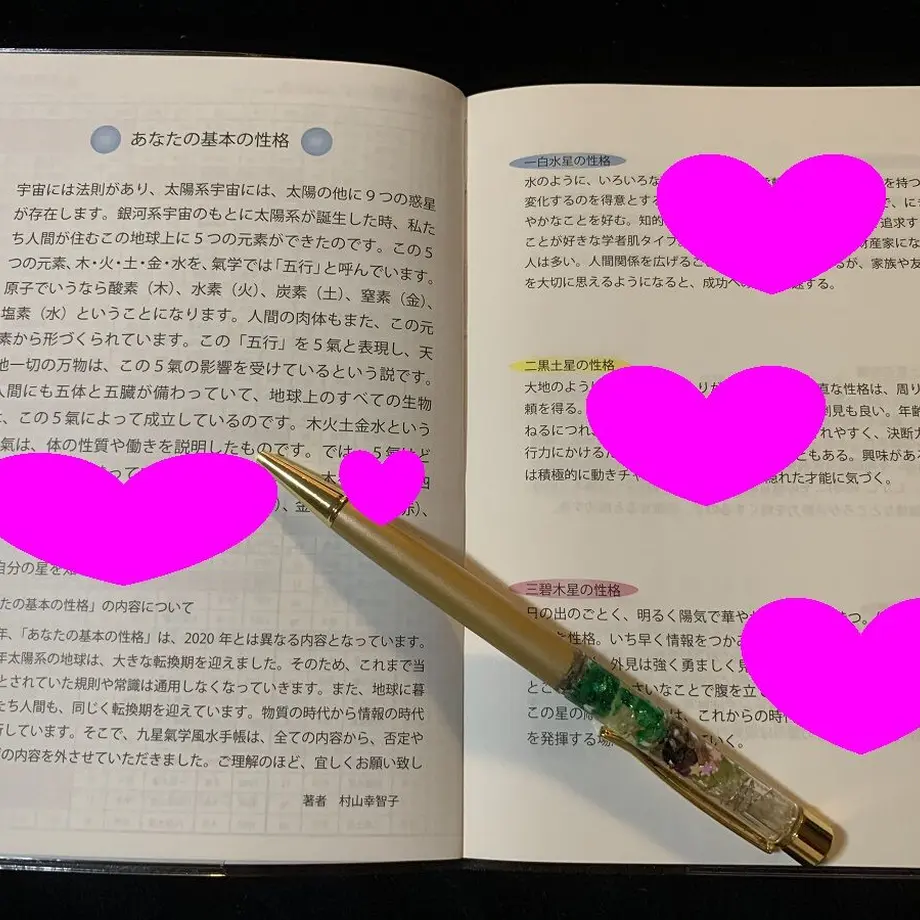 あなたの基本の性格
宇宙には法則があり、太陽系宇宙には、太陽の他に9つの惑星
が存在します。銀河系宇宙のもとに太陽系が誕生した時、私た
ち人間が住むこの地球上に5つの元素ができたのです。この5
つの元素、木・火・土・金・水を、氣学では「五行」と呼んでいます。
原子でいうなら酸素（木）、水素（火）、炭素（土）、窒素（金）、
塩素（水）ということになります。人間の肉体もまた、この元
素から形づくられています。この「五行」を5氣と表現し、天
地一切の万物は、この5氣の影響を受けているという説です。
人間にも五体と五臓が備わっていて、地球上のすべての生物
、この5氣によって成立しているのです。木火土金水という
氣は、体の性質や働きを説明したものです。では、5氣はど
って
四
）、金
自分の星を知
たの基本の性格」の内容について
年、「あなたの基本の性格」は、2020年とは異なる内容となっています。
年太陽系の地球は、大きな転換期を迎えました。そのため、これまで当
とされていた規則や常識は通用しなくなっていきます。また、地球に暮
たち人間も、同じく転換期を迎えています。物質の時代から情報の時代
行しています。そこで、九星氣学風水手帳は、全ての内容から、否定や
の内容を外させていただきました。ご理解のほど、宜しくお願い致し
著者　村山幸智子
一白水星の性格
水のように、いろいろな を持つ
変化するのを得意とする で、に
やかなことを好む。知的 追求す
ことが好きな学者肌タイプ 財産家にな
人は多い。人間関係を広げるこ るが、家族や友
を大切に思えるようになると、成功へ する。
二黒土星の性格
大地のように りが 直な性格は、周り
頼を得る。 倒見も良い。年齢
ねるにつれ れやすく、決断力
行力にかけるた こともある。興味があ
は積極的に動きチャ 隠れた才能に気づく。
三碧木星の性格
日の出のごとく、明るく陽気で華や つ。
性格。いち早く情報をつかみ
外見は強く勇ましく見
とこ さいなことで腹を立て
この星の は、これからの時代
を発揮する場 いく。